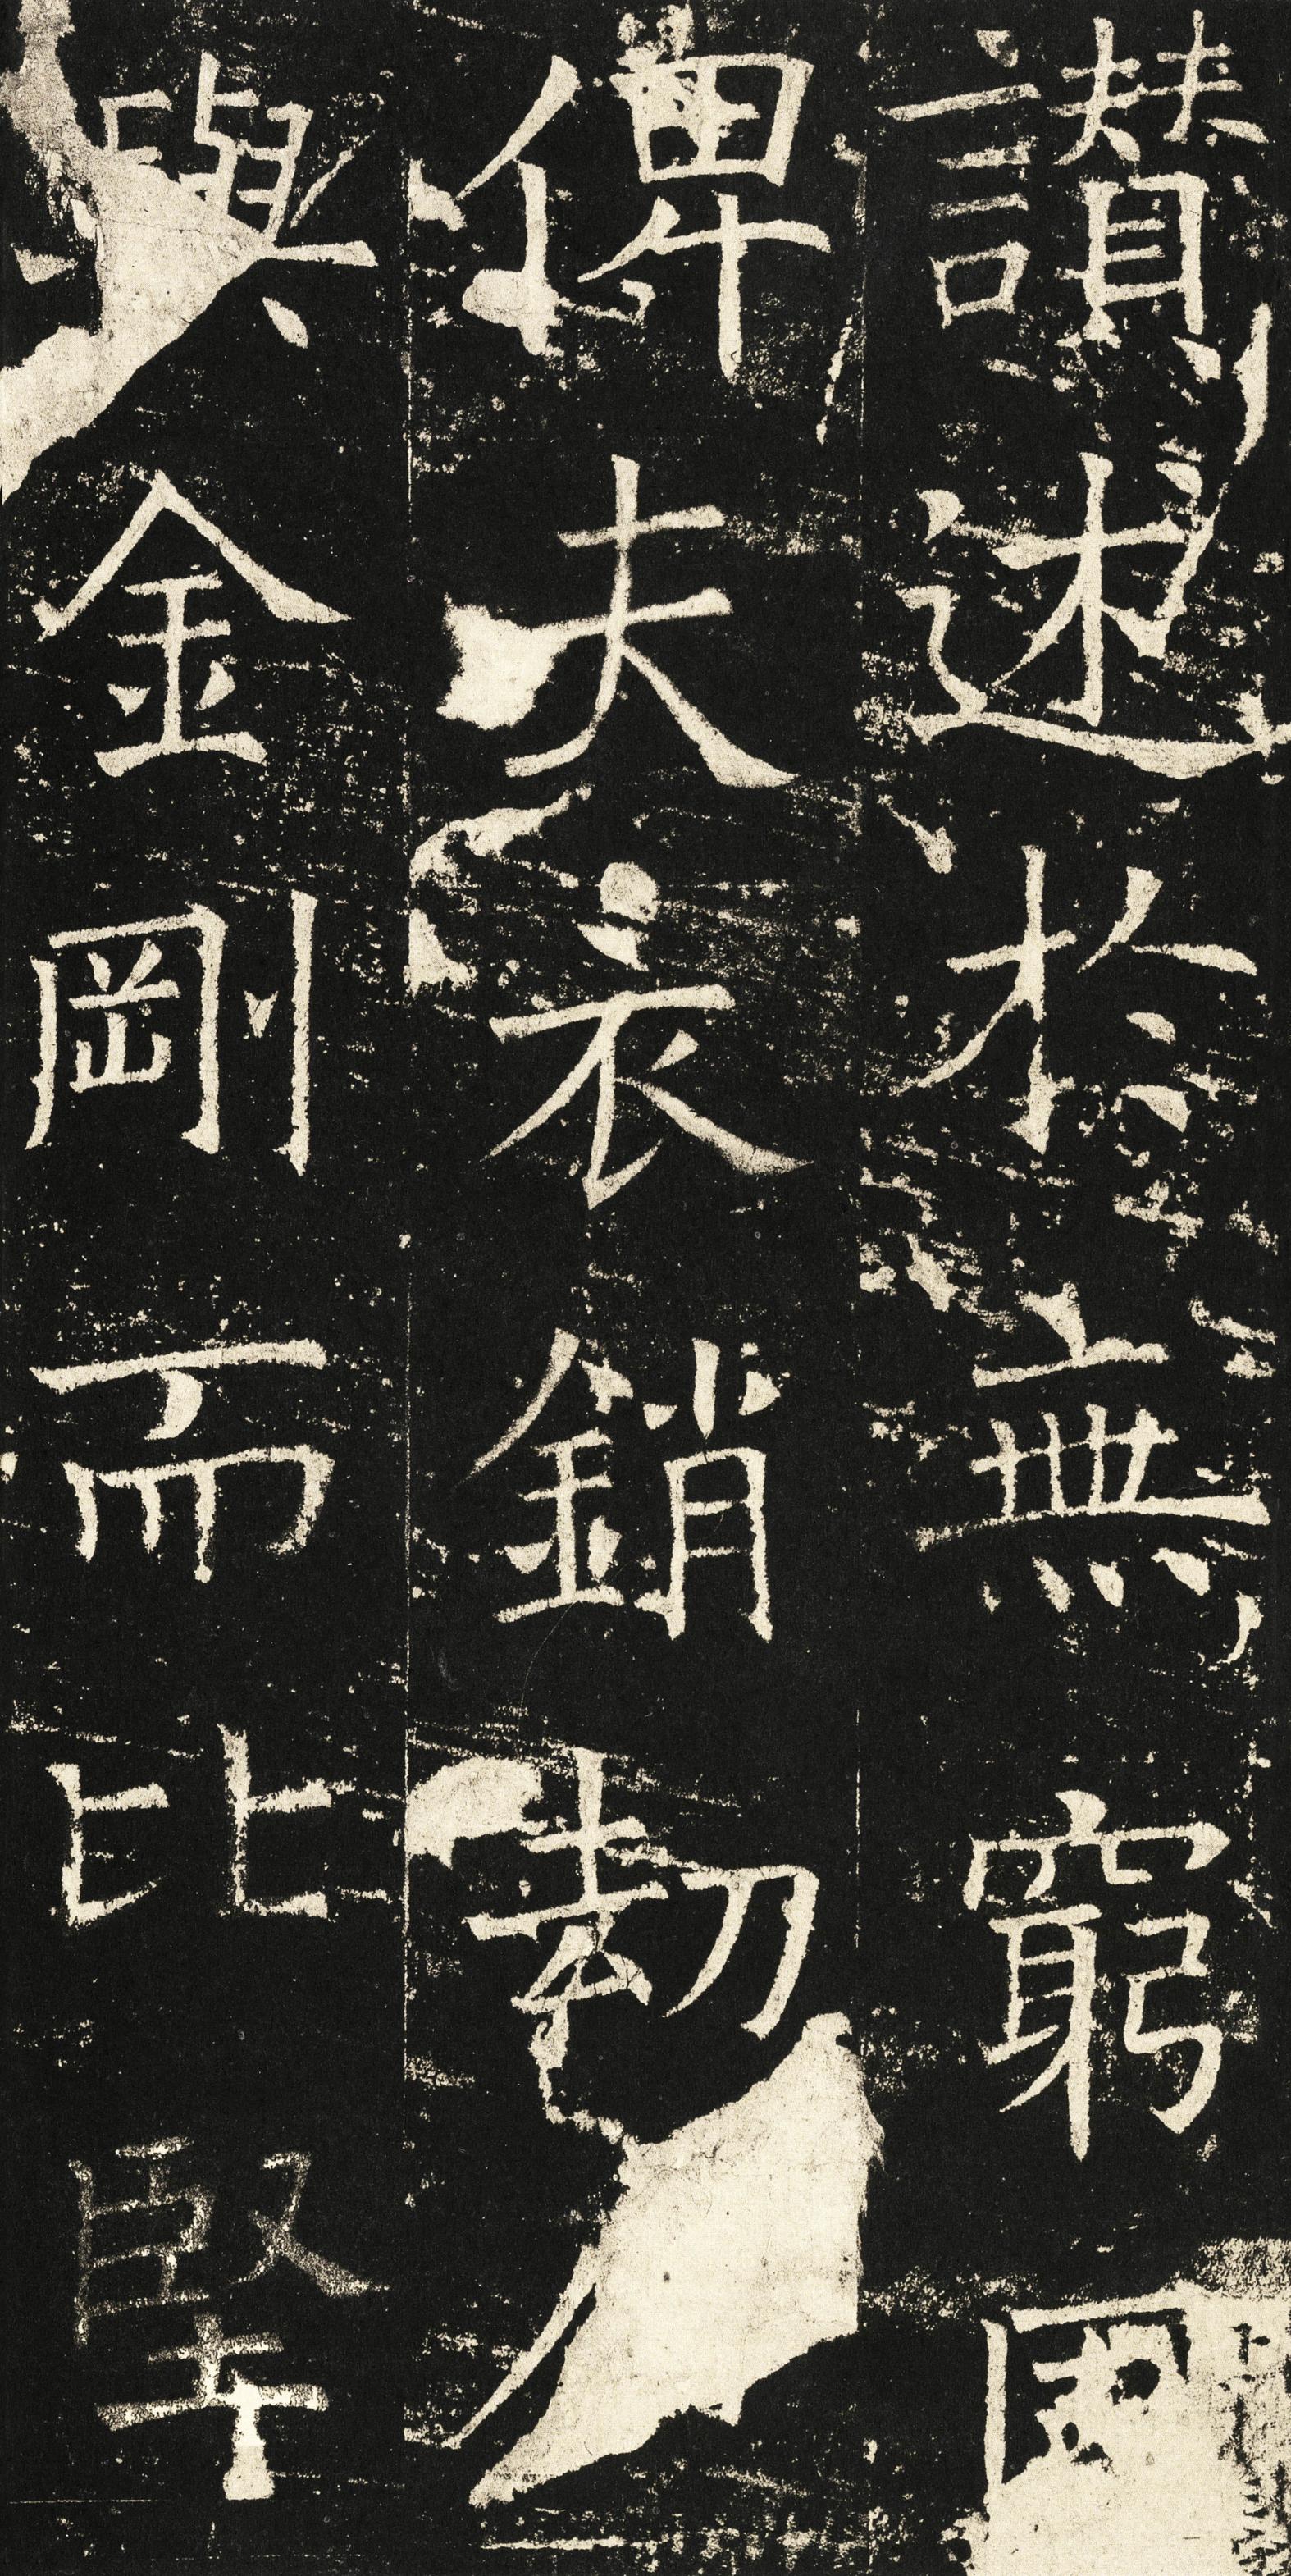 讚述於無窮國
俾夫衣銷劫
與金剛而比堅